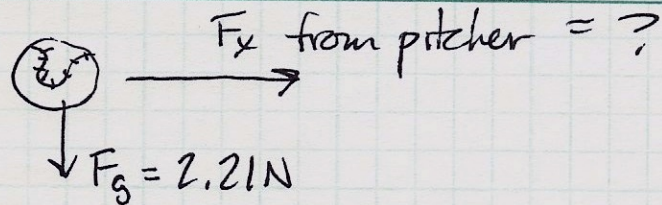 Fx from pitcher = ?
Fg = 2.21N